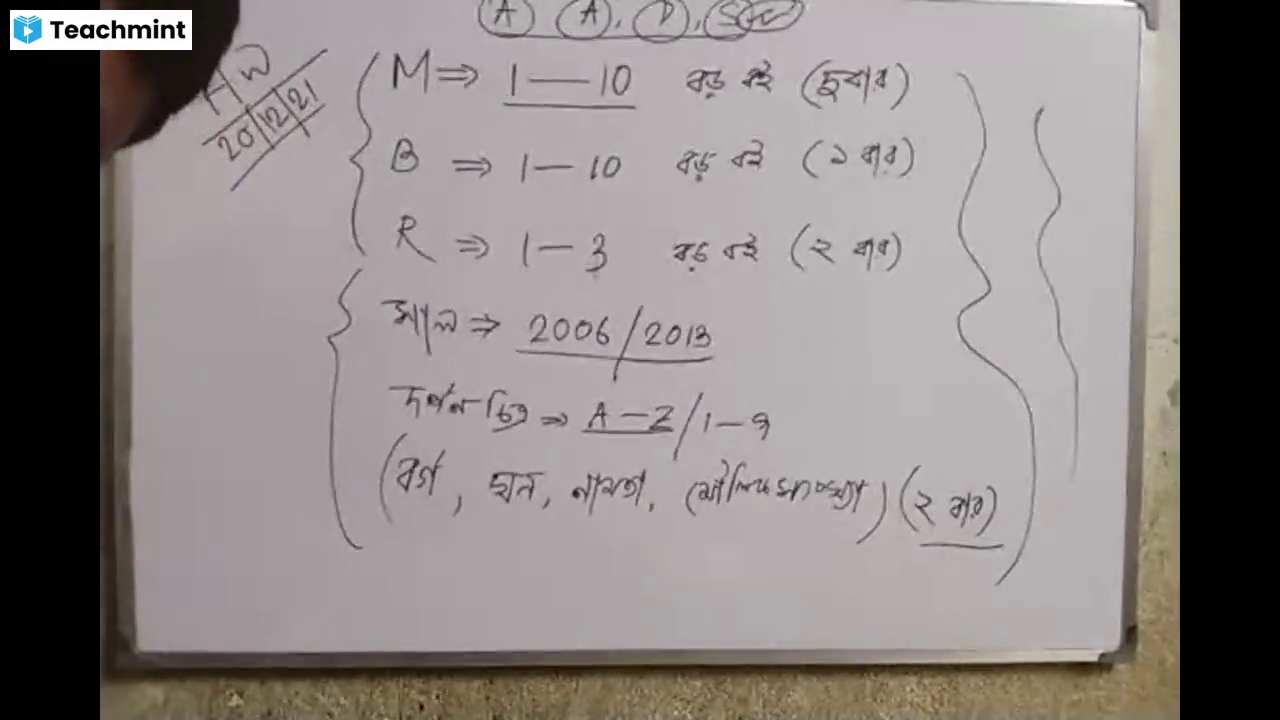 Teachmint
A A, D,
HW
20/12/21
M ⇒ 1 — 10 বড় বই (দুবার)
B ⇒ 1 — 10 বড় বই (১ বার)
R ⇒ 1 — 3 বড় বই (২ বার)
সাল ⇒ 2006/2013
দর্পন চিত্র ⇒ A — Z/1 — 9
(বর্গ, ঘন, নামতা, মৌলিক সংখ্যা) (২ বার)